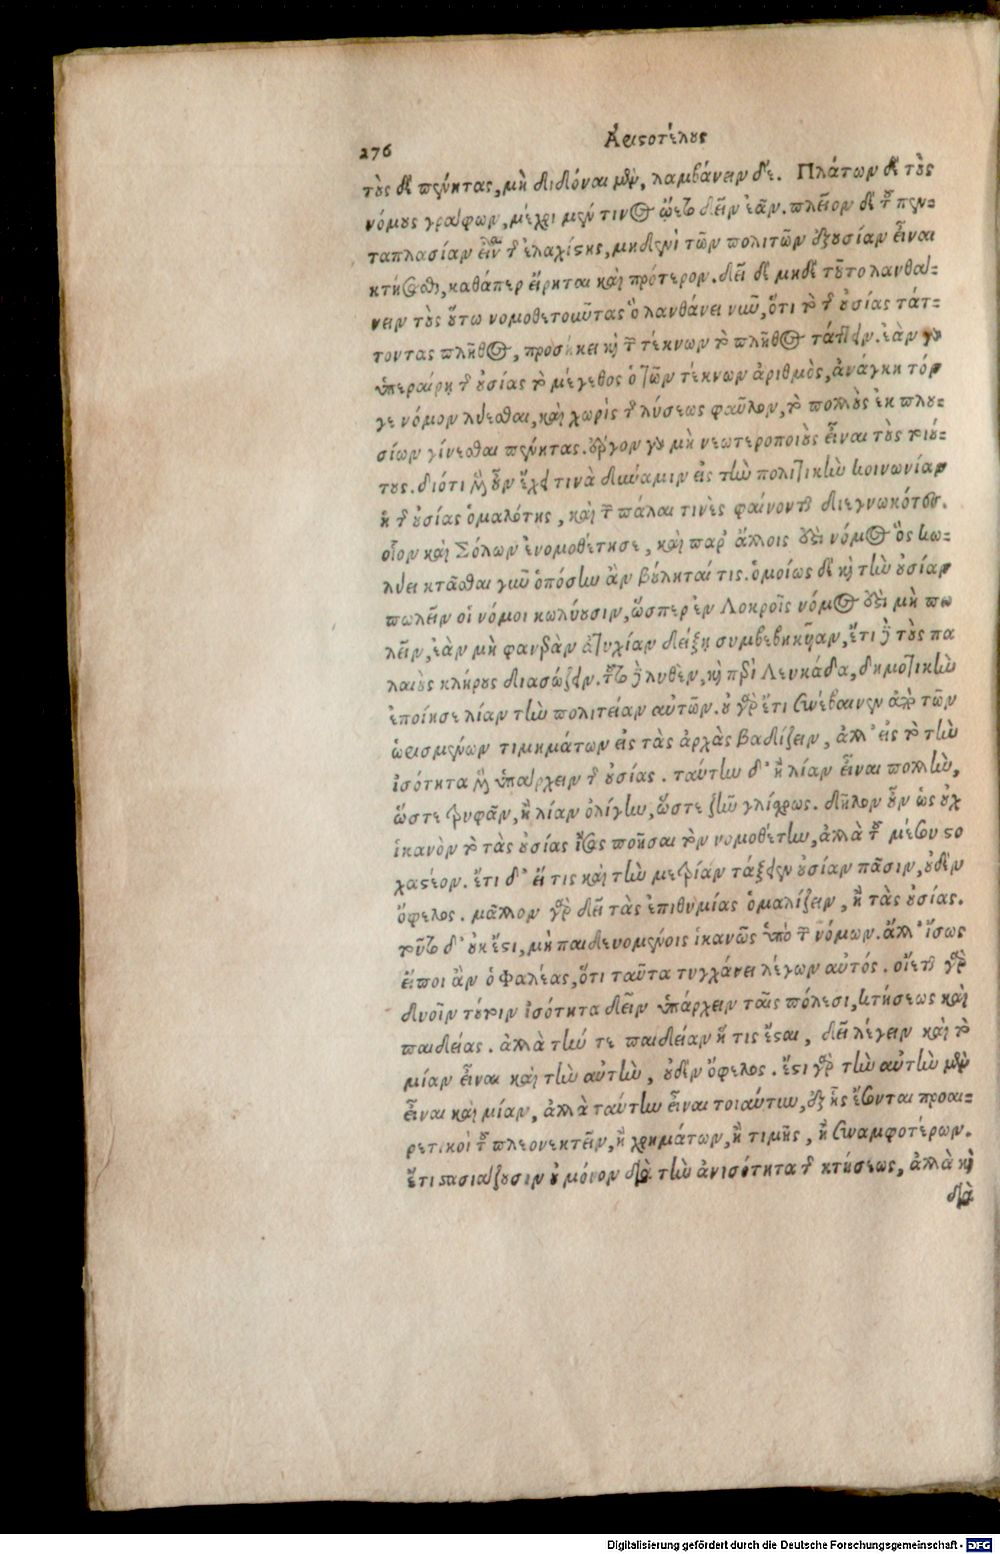 276
Ἀριστοτέλους
τοὺς δὲ πένητας, μὴ διδόναι μὲν, λαμβάνειν δέ. Πλάτων δὲ τοὺς
νόμους γράφων, μέχρι μέν τινος ᾤετο δεῖν ἐᾶν. πλεῖον δὲ τοῦ πεν-
ταπλασίαν εἶναι τῆς ἐλαχίστης, μηδενὶ τῶν πολιτῶν ἐξουσίαν εἶναι
κτήσασθαι, καθάπερ εἴρηται καὶ πρότερον. δεῖ δὲ μηδὲ τοῦτο λανθά-
νειν τοὺς οὕτω νομοθετοῦντας ὃ λανθάνει νῦν, ὅτι τὸ τῆς οὐσίας τάτ-
τοντας πλῆθος, προσήκει καὶ τῶν τέκνων τὸ πλῆθος τάττειν. ἐὰν γὰρ
ὑπεραίρῃ τῆς οὐσίας τὸ μέγεθος ὁ τῶν τέκνων ἀριθμὸς, ἀνάγκη τόν
γε νόμον λύεσθαι, καὶ χωρὶς τῆς λύσεως φαῦλον, τὸ πολλοὺς ἐκ πλου-
σίων γίνεσθαι πένητας. ἔργον γὰρ μὴ νεωτεροποιοὺς εἶναι τοὺς τοιού-
τους. διότι μὲν οὖν ἔχει τινὰ δύναμιν εἰς τὴν πολιτικὴν κοινωνίαν
ἡ τῆς οὐσίας ὁμαλότης, καὶ τῶν πάλαι τινὲς φαίνονται διεγνωκότες.
οἷον καὶ Σόλων ἐνομοθέτησε, καὶ παρ' ἄλλοις ἐστὶ νόμος ὃς κω-
λύει κτᾶσθαι γῆν ὁπόσην ἂν βούληταί τις. ὁμοίως δὲ καὶ τὴν οὐσίαν
πωλεῖν οἱ νόμοι κωλύουσιν, ὥσπερ ἐν Λοκροῖς νόμος ἐστὶ μὴ πω
λεῖν, ἐὰν μὴ φανερὰν ἀτυχίαν δείξῃ συμβεβηκυῖαν, ἔτι δὲ τοὺς πα
λαιοὺς κλήρους διασώζειν. τοῦτο δὲ λυθὲν, καὶ περὶ Λευκάδα, δημοτικὴν
ἐποίησε λίαν τὴν πολιτείαν αὐτῶν. οὐ γὰρ ἔτι συνέβαινεν ἀπὸ τῶν
ὡρισμένων τιμημάτων εἰς τὰς ἀρχὰς βαδίζειν, ἀλλ' εἰς τὸ τὴν
ἰσότητα μὲν ὑπάρχειν τῆς οὐσίας. ταύτην δ' ἢ λίαν εἶναι πολλὴν,
ὥστε τρυφᾶν, ἢ λίαν ὀλίγην, ὥστε ζῆν γλίσχρως. δῆλον οὖν ὡς οὐχ
ἱκανὸν τὸ τὰς οὐσίας ἴσας ποιῆσαι τὸν νομοθέτην, ἀλλὰ τοῦ μέσου στο
χαστέον. ἔτι δ' εἴ τις καὶ τὴν μετρίαν τάξειεν οὐσίαν πᾶσιν, οὐδὲν
ὄφελος. μᾶλλον γὰρ δεῖ τὰς ἐπιθυμίας ὁμαλίζειν, ἢ τὰς οὐσίας.
τοῦτο δ' οὐκ ἔστι, μὴ παιδευομένοις ἱκανῶς ὑπὸ τῶν νόμων. ἀλλ' ἴσως
εἴποι ἂν ὁ Φαλέας, ὅτι ταῦτα τυγχάνει λέγων αὐτός. οἴεται γὰρ
δυοῖν τούτοιν ἰσότητα δεῖν ὑπάρχειν ταῖς πόλεσι, κτήσεως καὶ
παιδείας. ἀλλὰ τήν τε παιδείαν ἥ τις ἔσται, δεῖ λέγειν καὶ τὸ
μίαν εἶναι καὶ τὴν αὐτὴν, οὐδὲν ὄφελος. ἔστι γὰρ τὴν αὐτὴν μὲν
εἶναι καὶ μίαν, ἀλλὰ ταύτην εἶναι τοιαύτην, ἐξ ἧς ἔσονται προαι-
ρετικοὶ τοῦ πλεονεκτεῖν, ἢ χρημάτων, ἢ τιμῆς, ἢ συναμφοτέρων.
ἔτι στασιάζουσιν οὐ μόνον διὰ τὴν ἀνισότητα τῆς κτήσεως, ἀλλὰ καὶ
διὰ
Digitalisierung gefördert durch die Deutsche Forschungsgemeinschaft - DFG